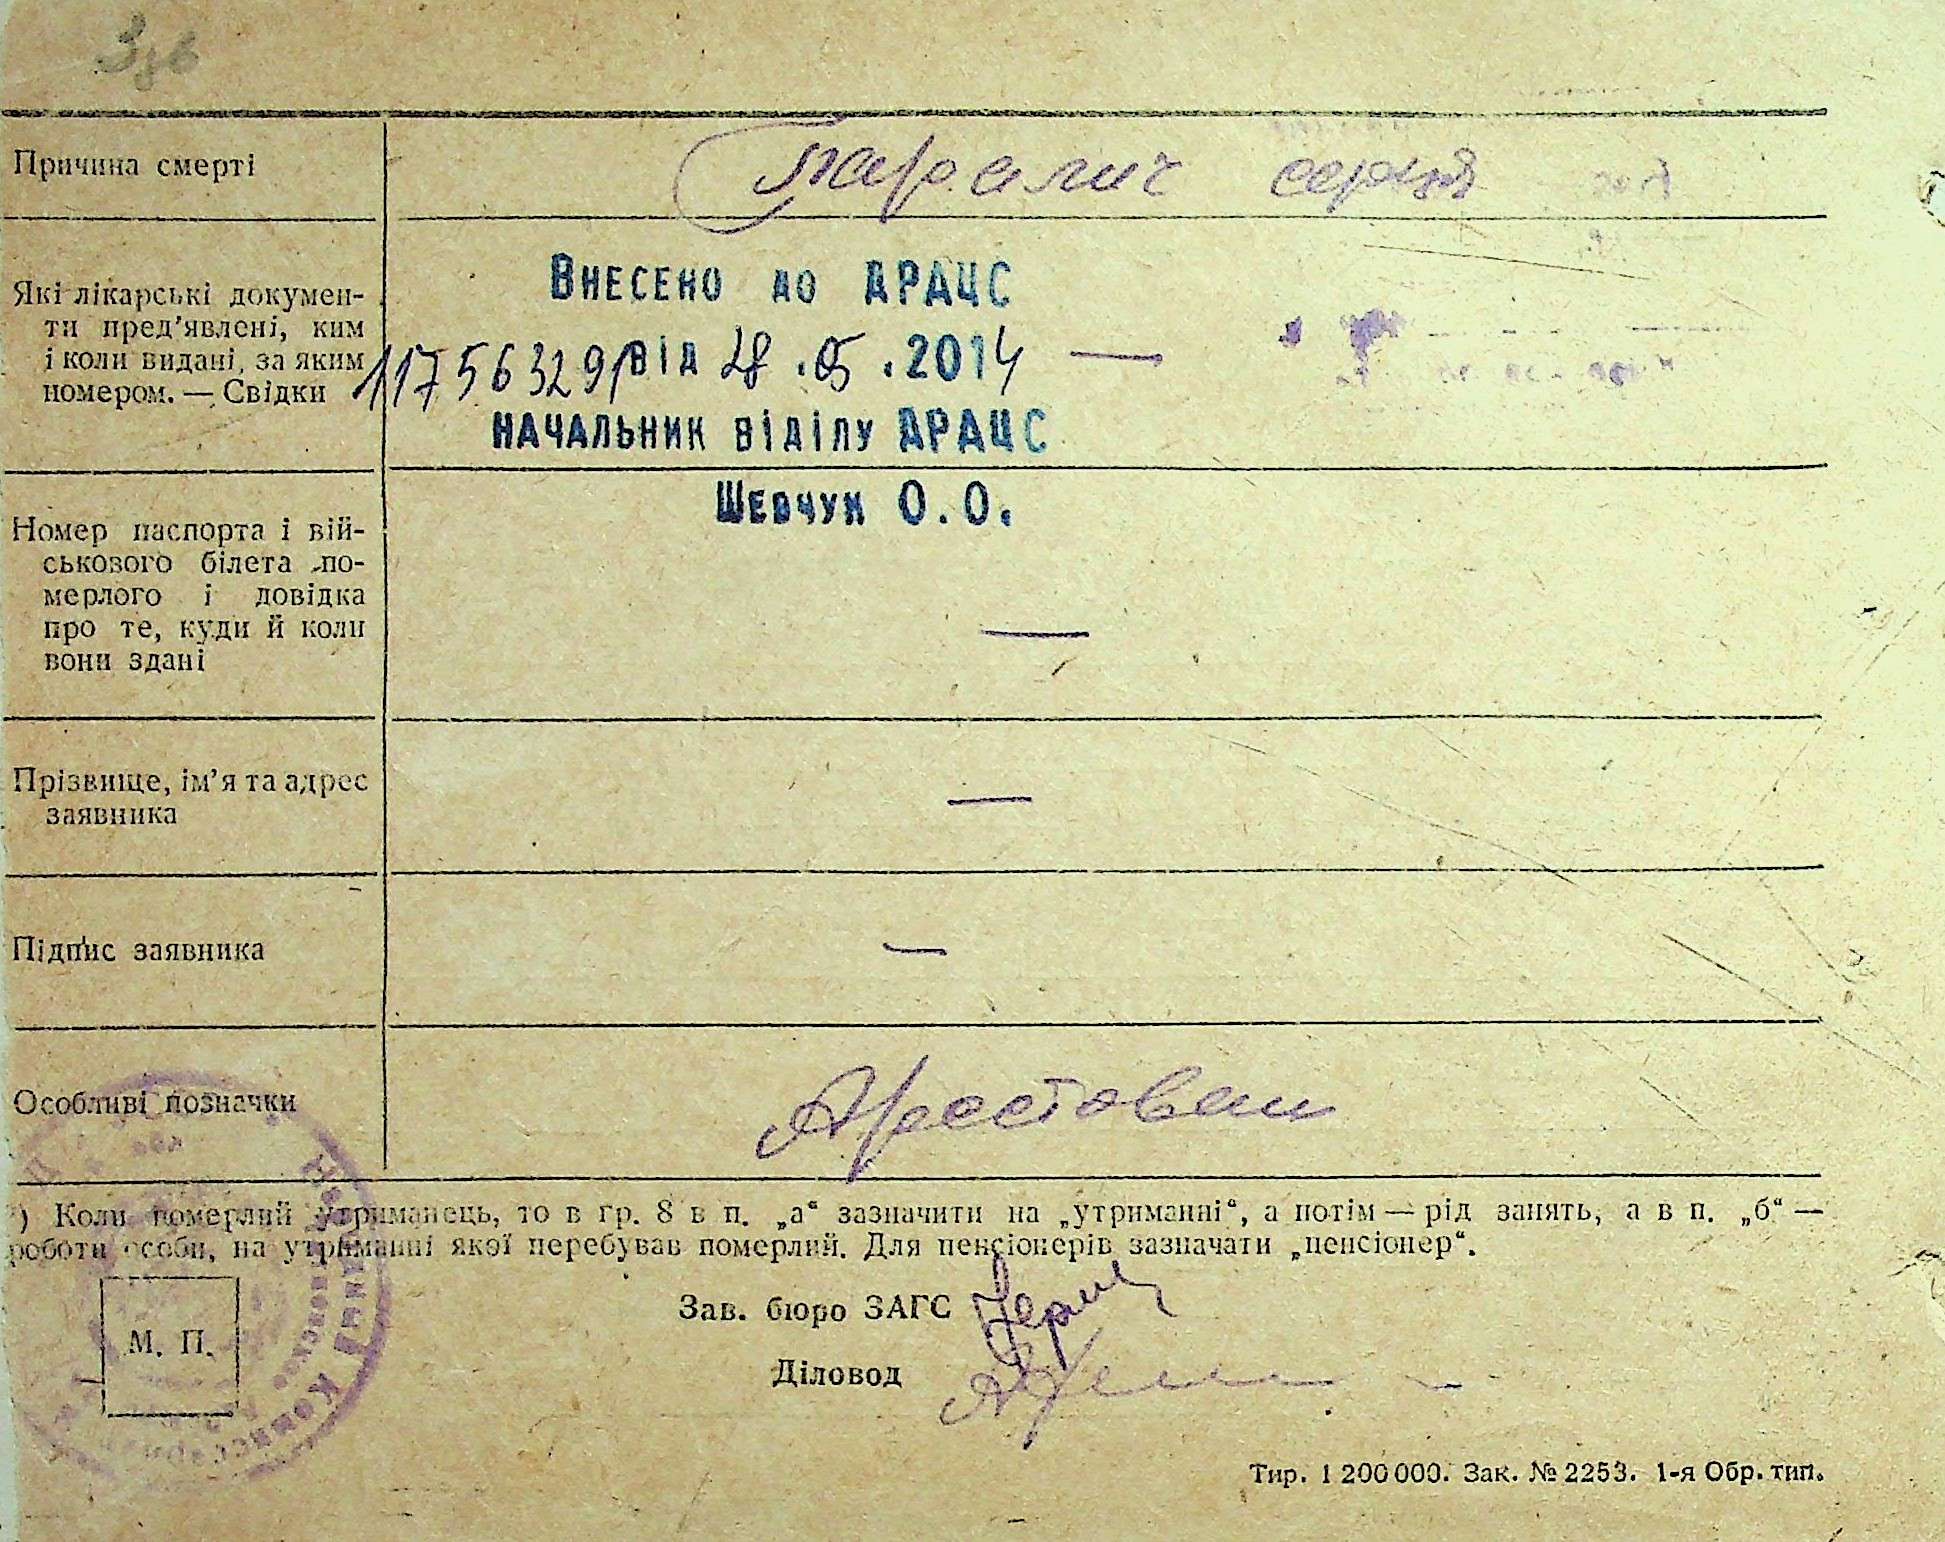 Зув
Причина смерті
Параліч серця
Які лікарські докумен-
ти пред'явлені, ким
і коли видані, за яким
номером. — Свідки
Внесено до ДРАЦС
117563291 від 28.05.2014 —
начальник відділу ДРАЦС
Шевчук О.О.
Номер паспорта і вій-
ськового білета по-
мерлого і довідка
про те, куди й коли
вони здані
—
Прізвище, ім'я та адрес
заявника
—
Підпис заявника
—
Особливі позначки
Арестован
*) Коли померлий утриманець, то в гр. 8 в п. „а“ зазначити на „утриманні“, а потім — рід занять, а в п. „б“ —
роботи особи, на утриманні якої перебував померлий. Для пенсіонерів зазначати „пенсіонер“.
М. П.
Зав. бюро ЗАГС
Діловод
Тир. 1 200 000. Зак. № 2253. 1-я Обр. тип.